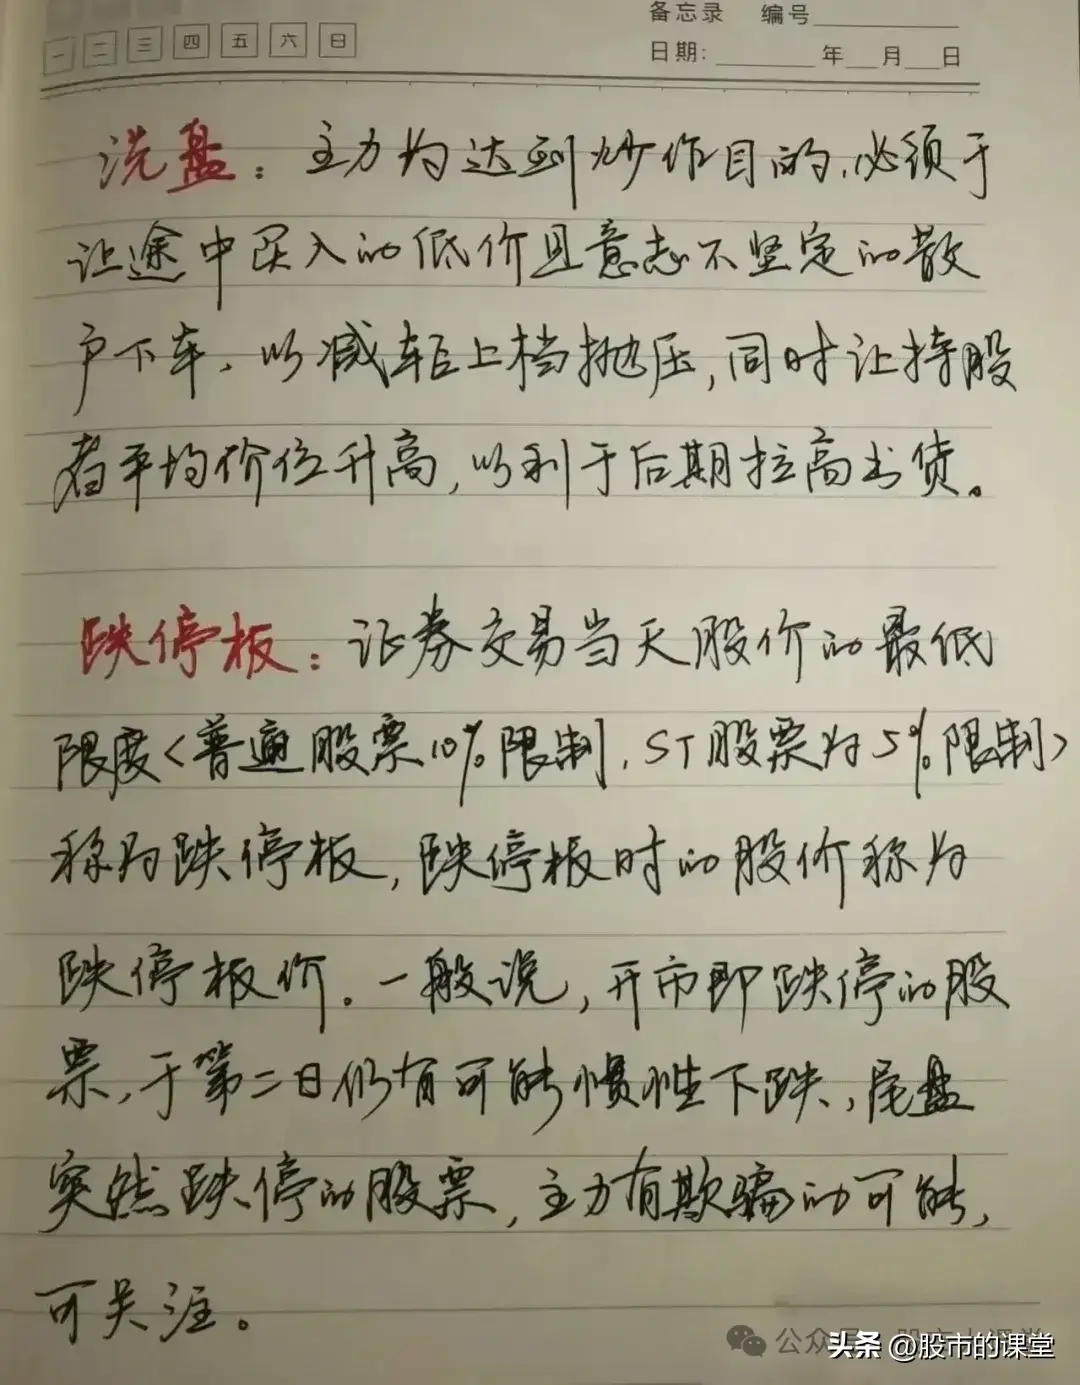 备忘录 编号
一 二 三 四 五 六 日
日期: 年 月 日
洗盘：主力为达到炒作目的，必须于
让途中买入的低价且意志不坚定的散
户下车，以减轻上档抛压，同时让持股
者平均价位升高，以利于后期拉高出货。
跌停板：证券交易当天股价的最低
限度<普通股票10%限制，ST股票为5%限制>
称为跌停板，跌停板时的股价称为
跌停板价。一般说，开市即跌停的股
票，于第二日仍有可能惯性下跌，尾盘
突然跌停的股票，主力有欺骗的可能，
可关注。
公众号
头条 @股市的课堂